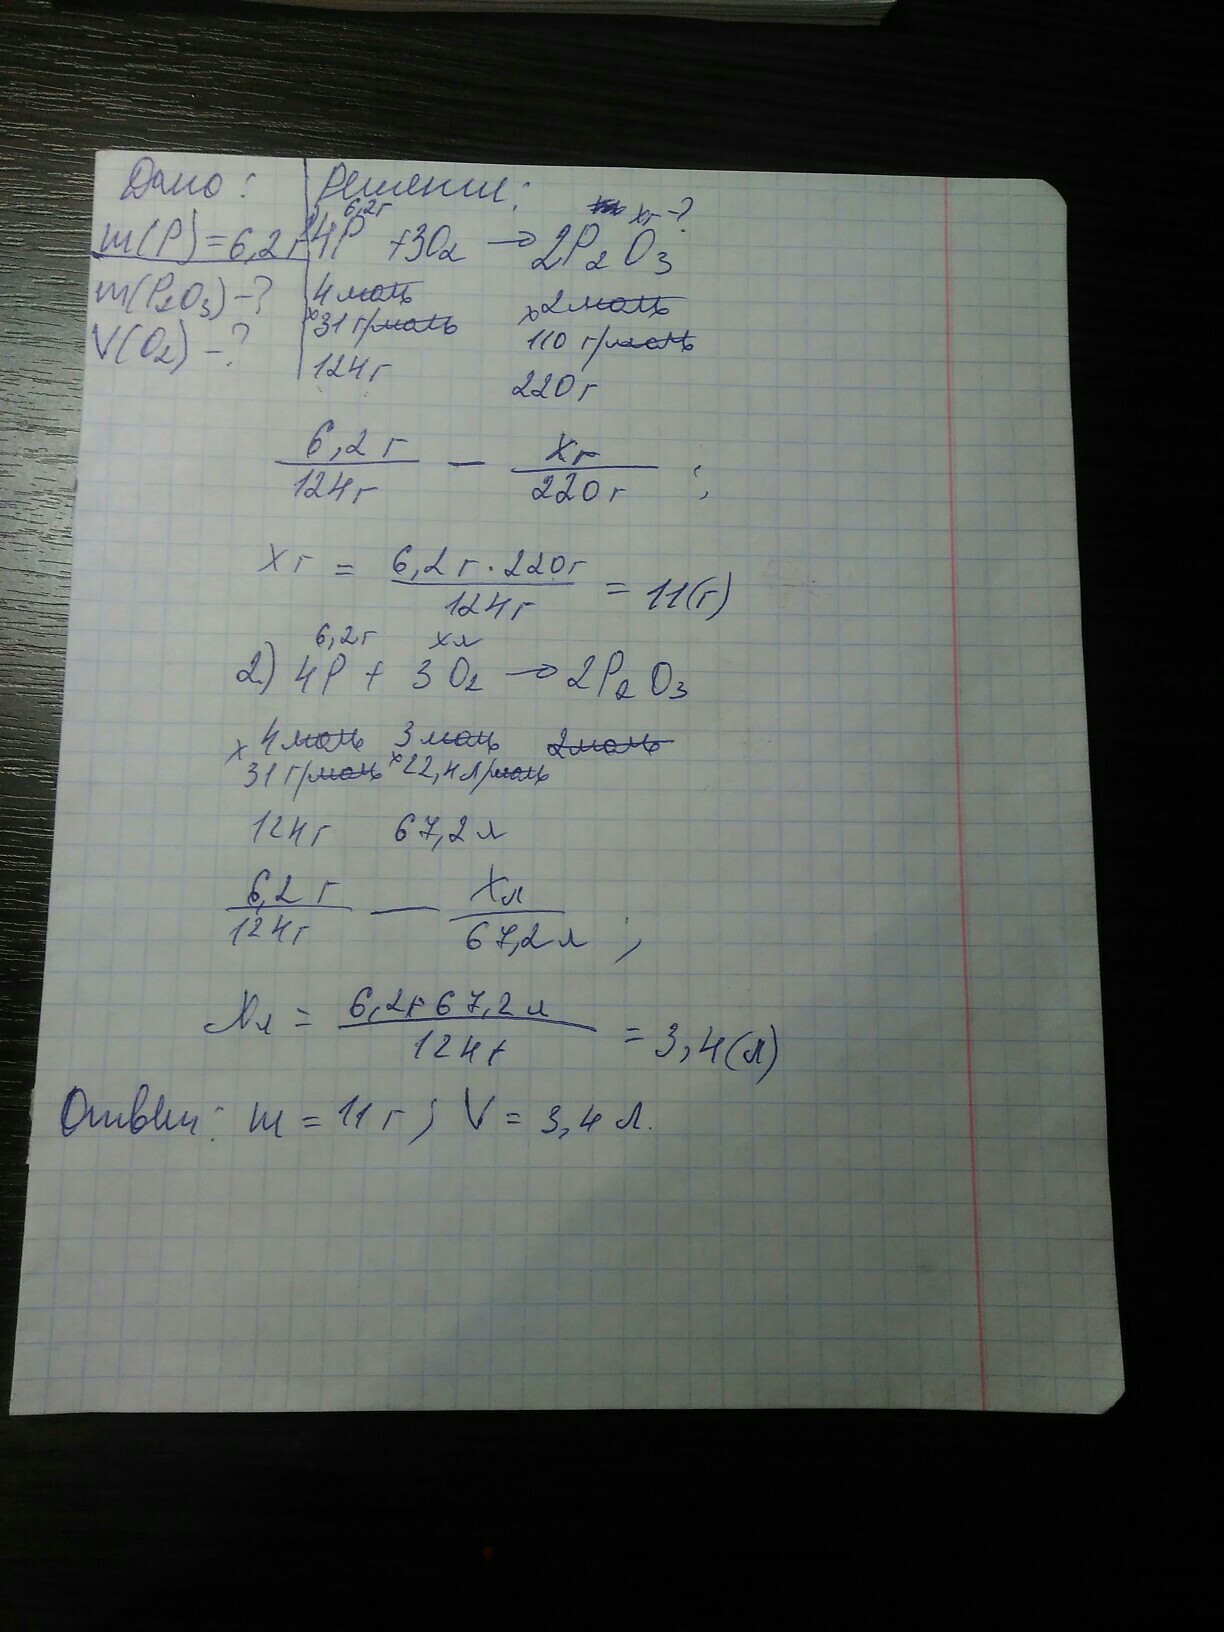 Дано: Решение:
6,2г хг-?
m(P)=6,2г 4P +3O₂ → 2P₂O₃
m(P₂O₃)-? 4моль 2моль
V(O₂)-? х31г/моль х110 г/моль
124г 220г
6,2г/124г — хг/220г ;
хг = 6,2г·220г/124г = 11(г)
6,2г хл
2) 4P + 3O₂ → 2P₂O₃
х4моль 3моль 2моль
31г/моль х22,4л/моль
124г 67,2л
6,2г/124г — Хл/67,2л ;
Хл = 6,2г·67,2л/124г = 3,4(л)
Ответ: m = 11г; V = 3,4 л.